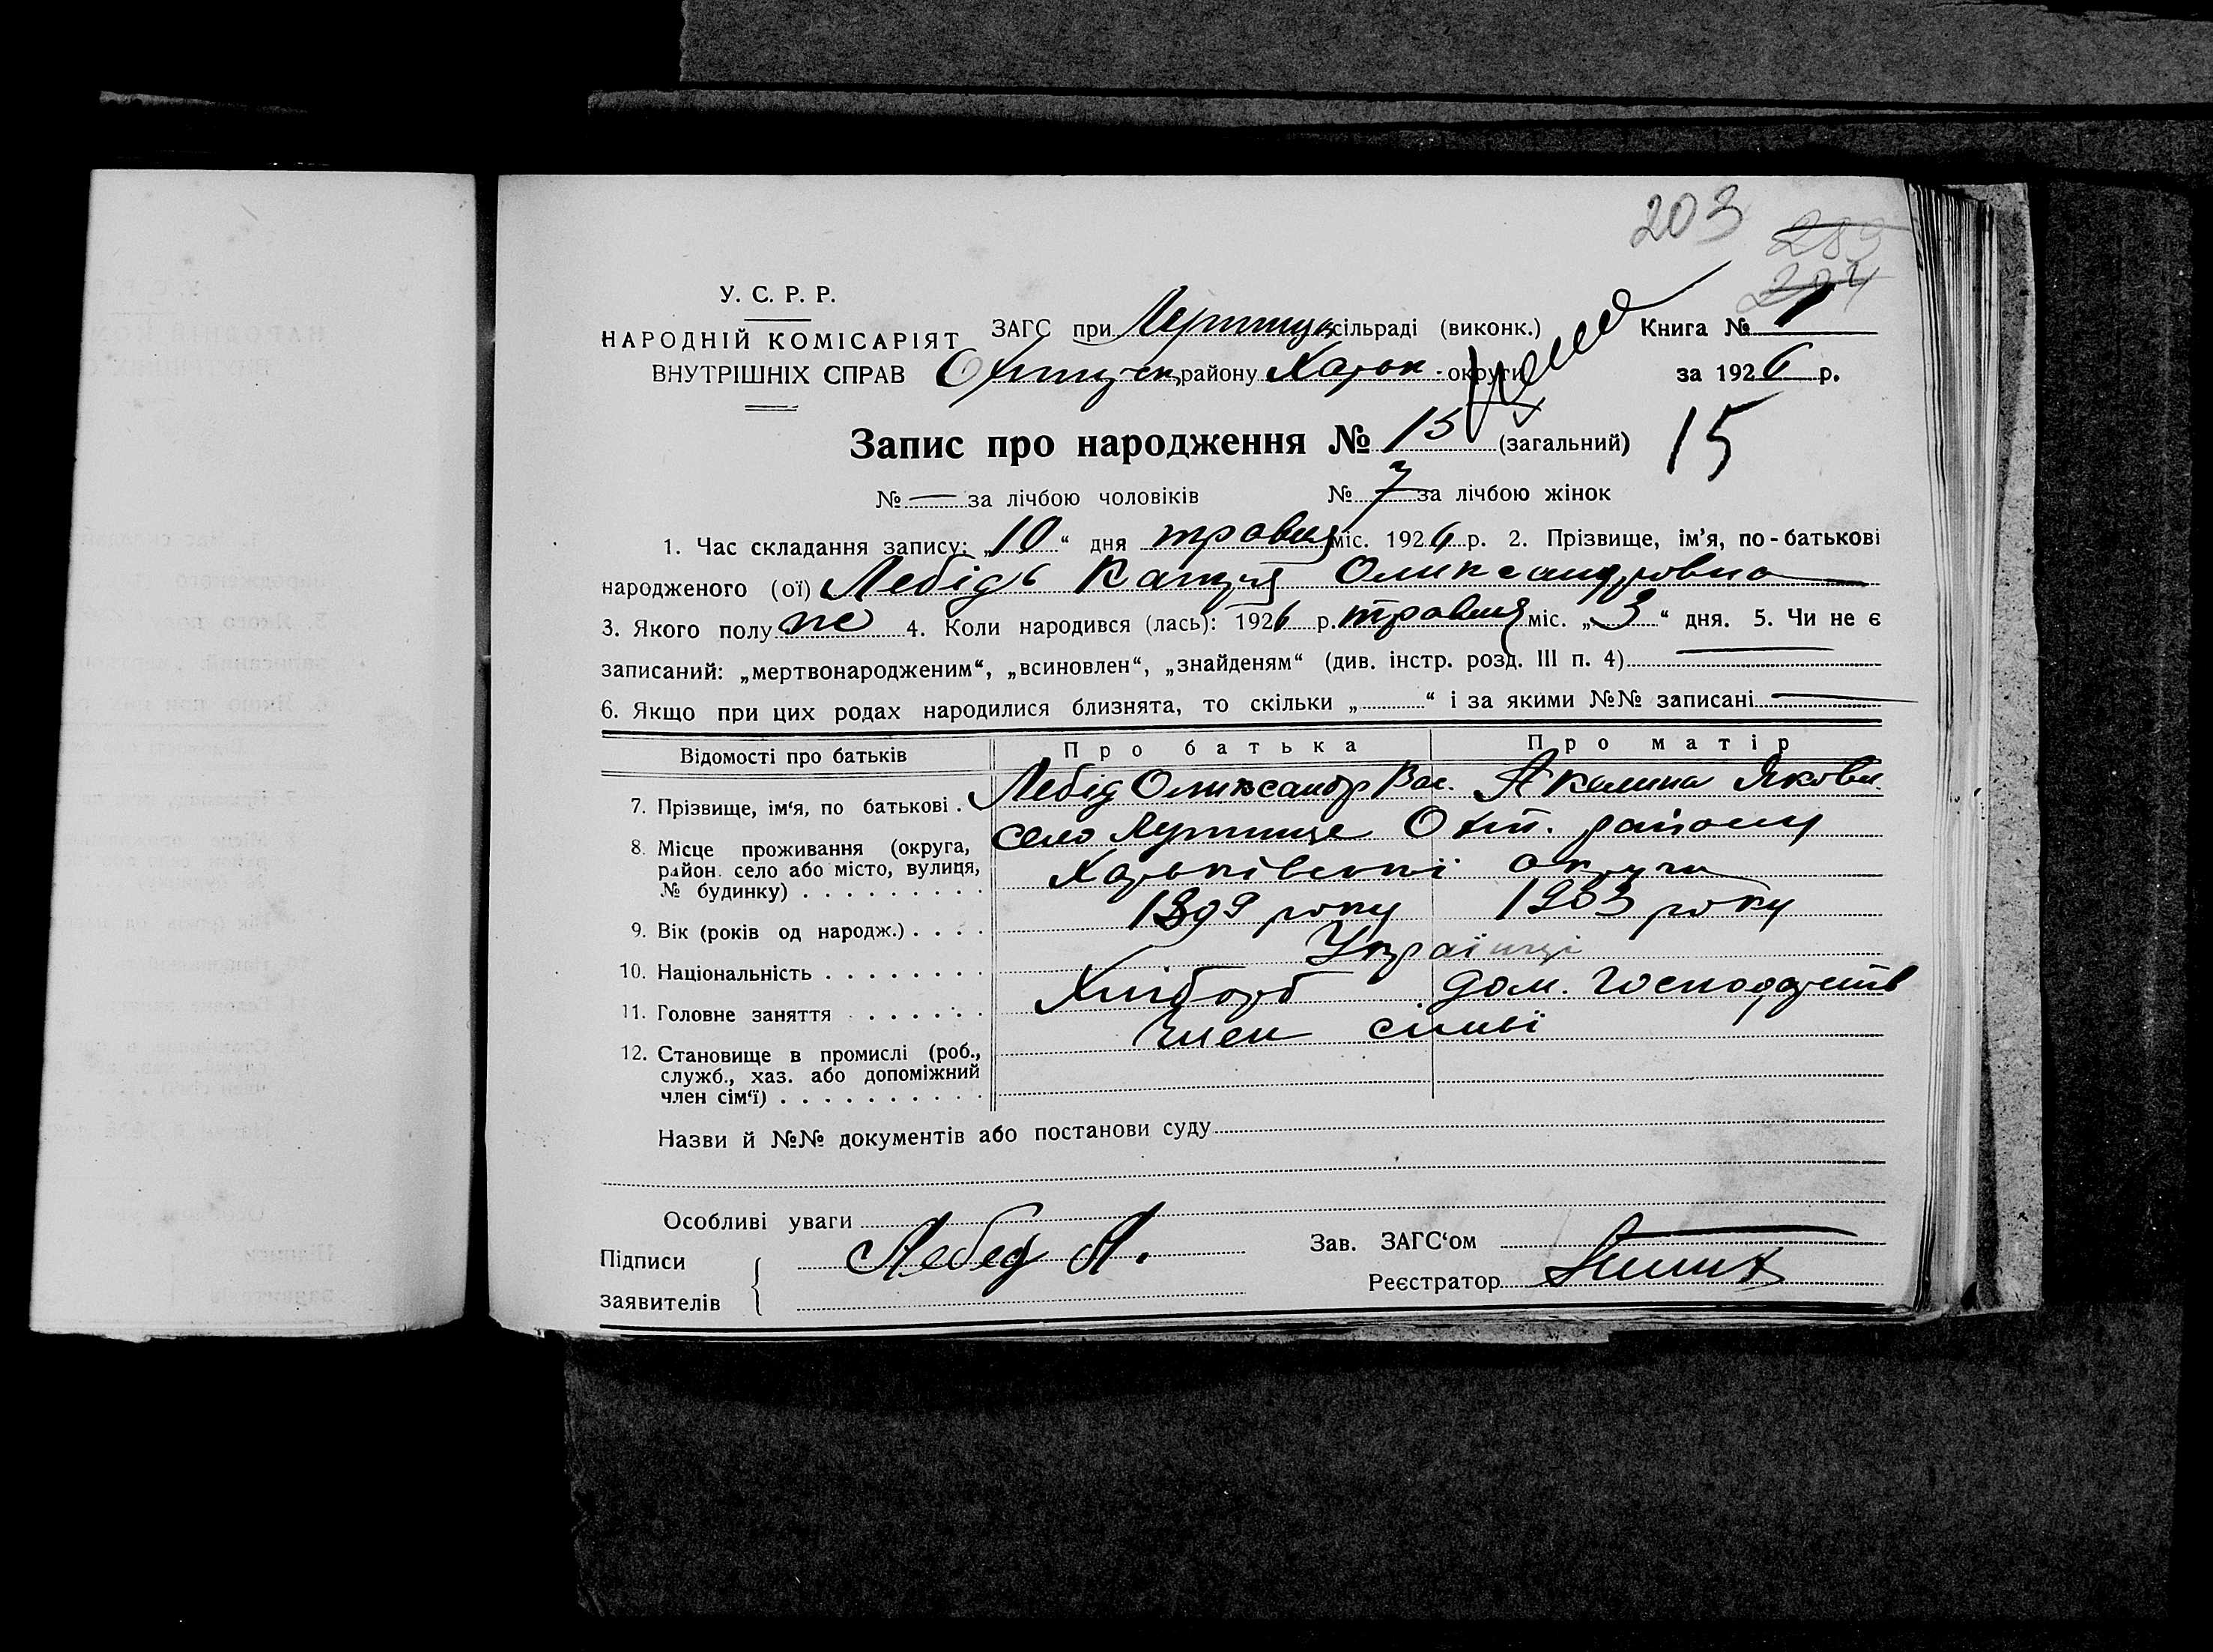 203
У. С. Р. Р.
НАРОДНІЙ КОМІСАРІЯТ
ВНУТРІШНІХ СПРАВ
ЗАГС при сільраді (виконк.)
району Харьк. округи
Книга № 1
за 1926 р.
Запис про народження № 15 (загальний) 15
№ — за лічбою чоловіків № 7 за лічбою жінок
1. Час складання запису: „10“ дня травня міс. 1926 р. 2. Прізвище, ім'я, по-батькові
народженого (ої) Лебідь Катря Олександровна
3. Якого полу же 4. Коли народився (лась): 1926 р. травня міс. „3“ дня. 5. Чи не є
записаний: „мертвонародженим“, „всиновлен“, „знайденям“ (див. інстр. розд. III п. 4) —
6. Якщо при цих родах народилися близнята, то скільки „ “ і за якими №№ записані —
Відомості про батьків Про батька Про матір
7. Прізвище, ім'я, по батькові . Лебід Олександр Вас. Акелина Яковл.
8. Місце проживання (округа, район село або місто, вулиця, № будинку) . . . . . . . . . село Охт. району
Харьківської округи
9. Вік (років од народж.) . . . . 1899 року 1903 року
10. Національність . . . . . . . . Українці
11. Головне заняття . . . . . . Хлібороб дом. господарств
12. Становище в промислі (роб., служб., хаз. або допоміжний член сім'ї) . . . . . . . . . . член сімьї
Назви й №№ документів або постанови суду
Особливі уваги
Підписи
заявителів
Лебед А.
Зав. ЗАГС'ом —
Реєстратор